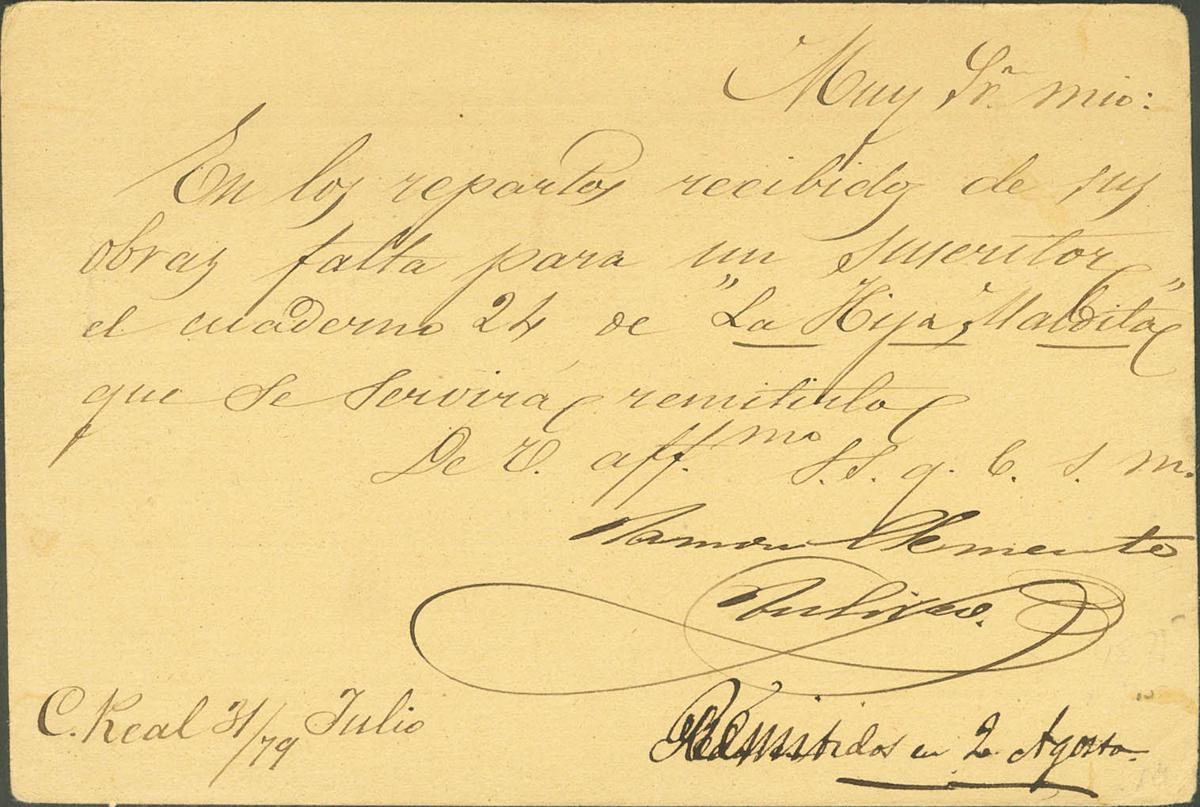 Muy Sr. mio:
En los repartos recibidos de sus
obras falta para un suscritor
el cuaderno 24 de "La Hija Maldita"
que se servirá remitirlo
De V. aff.mo S.S. q. b. s. m.
Ramon Clemente
C. Real 31/79 Julio
Remitidos en 2 Agosto